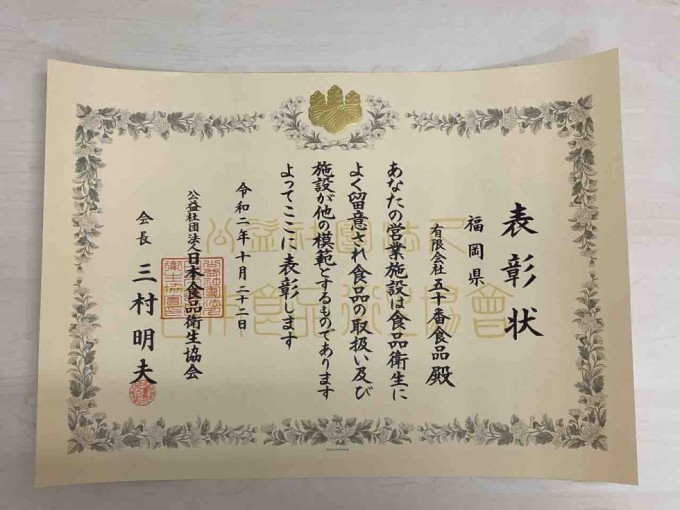 表彰状
福岡県
有限会社 五十番食品 殿
あなたの営業施設は食品衛生に
よく留意され食品の取扱い及び
施設が他の模範とするものであります
よってここに表彰します
令和二年十月二十二日
公益社団法人日本食品衛生協会
会長 三村明夫
公益社團法人
日本食品衛生協會